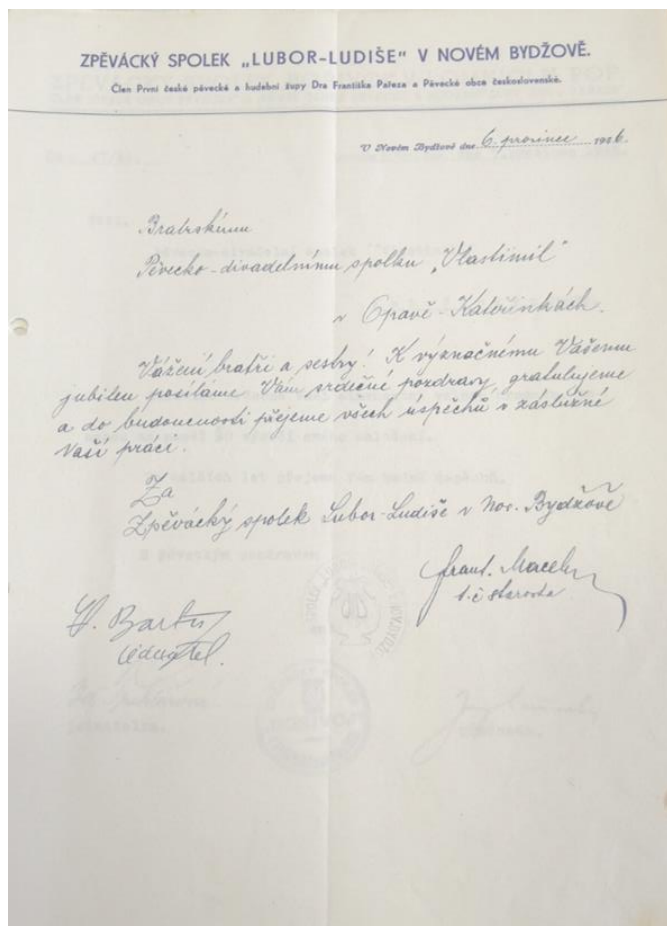 ZPĚVÁCKÝ SPOLEK „LUBOR-LUDIŠE" V NOVÉM BYDŽOVĚ.
Člen První české pěvecké a hudební župy Dra Františka Pařeza a Pěvecké obce československé.
V Novém Bydžově dne 6. prosince 1946.
Bratrskému
Pěvecko-divadelnímu spolku „Vlastimil"
v Opavě-Kateřinkách.
Vážení bratři a sestry! K význačnému Vašemu
jubileu posíláme Vám srdečné pozdravy, gratulujeme
a do budoucnosti přejeme všech úspěchů v záslužné
Vaší práci.
Za
Zpěvácký spolek Lubor-Ludiše v Nov. Bydžově
Frant.
t. č. starosta
jednatel.